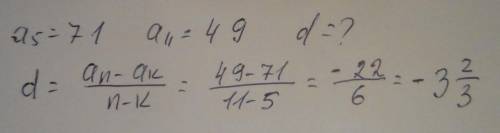 a₅ = 71 a₁₁ = 49 d = ?
d = (aₙ - aₖ)/(n - k) = (49 - 71)/(11 - 5) = (-22)/6 = -3 2/3